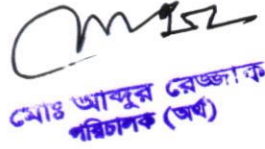 মোঃ আব্দুর রেজ্জাক
পরিচালক (অর্থ)